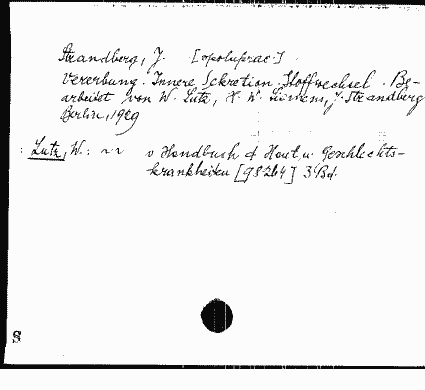 Strandberg, J. [współprac.]
Vererbung. Innere Sekretion. Stoffwechsel. Be-
arbeitet von W. Lutz, H. W. Siemens, J. Strandberg
Berlin, 1929
Lutz, W.: ~~ v Handbuch d Haut u Geschlechts-
krankheiten [98264] 3 Bd.
S